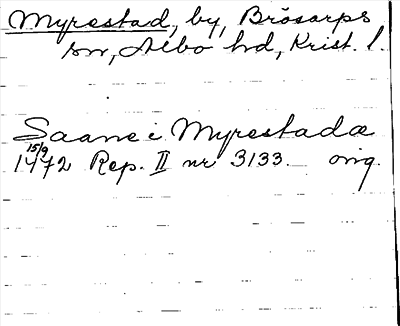 Myrestad, by, Brösarps
sn, Albo hd, Krist. l.
Saane i Myrestadæ
15/9
1472 Rep. II nr 3133 orig.